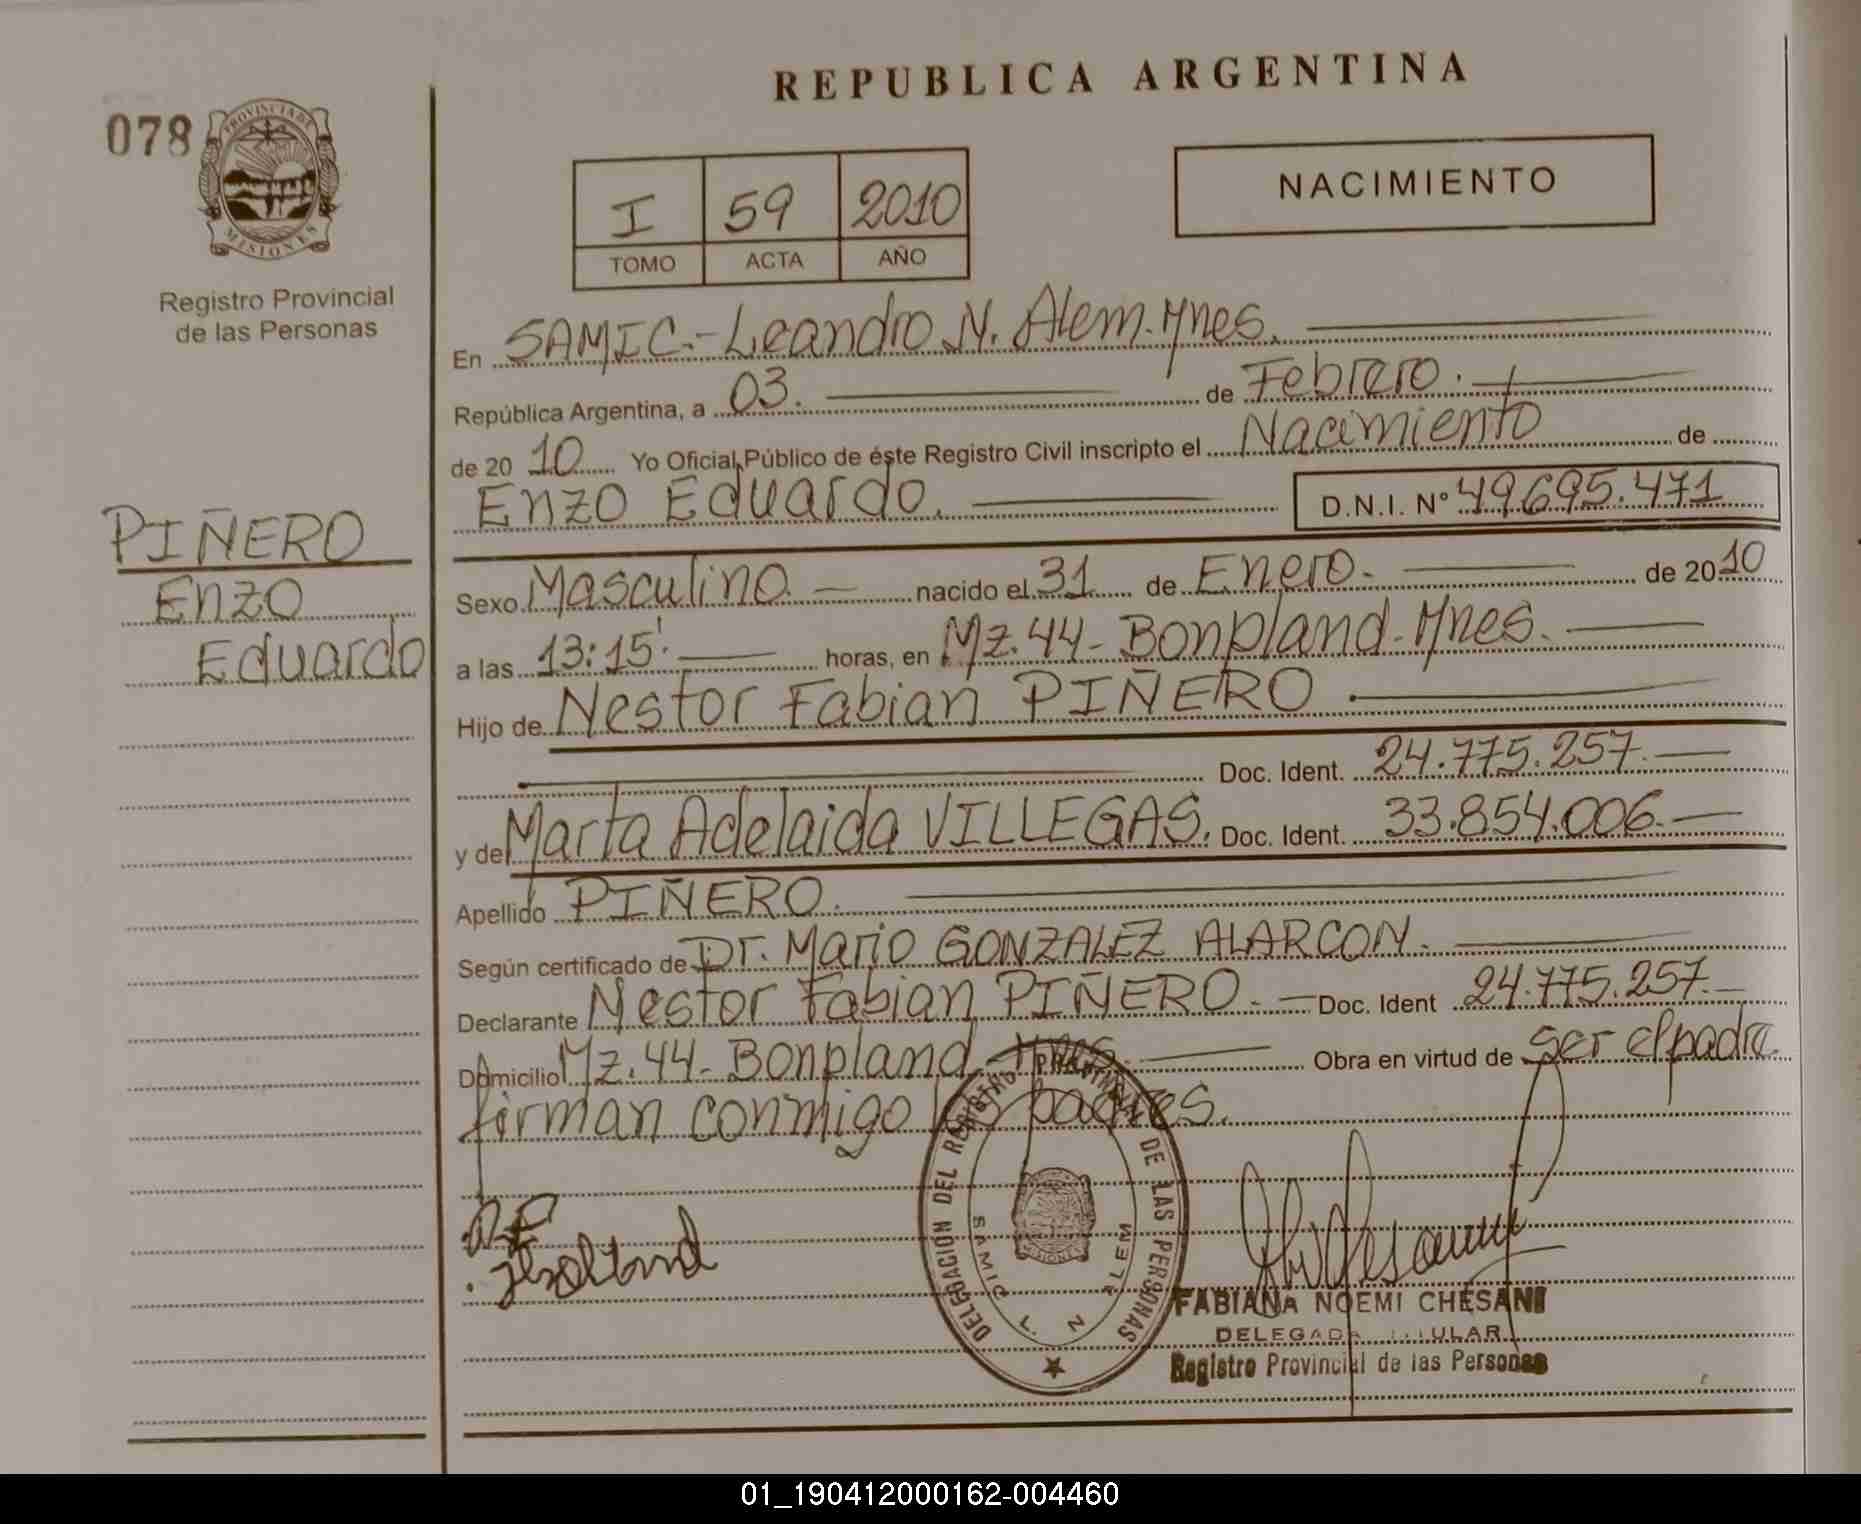 REPUBLICA ARGENTINA
078
PROVINCIA DE
MISIONES
Registro Provincial
de las Personas
I 59 2010
TOMO ACTA AÑO
NACIMIENTO
En SAMIC.- Leandro N. Alem. Mnes.
República Argentina, a 03. de Febrero.
de 20 10 Yo Oficial Público de éste Registro Civil inscripto el Nacimiento de
Enzo Eduardo. D.N.I. Nº 49695.471
PIÑERO
Enzo
Eduardo
Sexo Masculino nacido el 31 de Enero. de 20 10
a las 13:15' horas, en Mz. 44- Bonpland. Mnes.
Hijo de Nestor Fabian PIÑERO.
Doc. Ident. 24.775.257.
y de Marta Adelaida VILLEGAS. Doc. Ident. 33.854.006.
Apellido PIÑERO.
Según certificado de Dr. Mario GONZALEZ ALARCON.
Declarante Nestor Fabian PIÑERO. Doc. Ident 24.775.257.
Domicilio Mz. 44- Bonpland. Mnes. Obra en virtud de ser el padre.
firman conmigo los padres.
DELEGACIÓN DEL REGISTRO PROVINCIAL DE LAS PERSONAS
SAMIC L. N. ALEM
MISIONES
FABIANA NOEMI CHESANI
DELEGADA TITULAR
Registro Provincial de las Personas
01_190412000162-004460